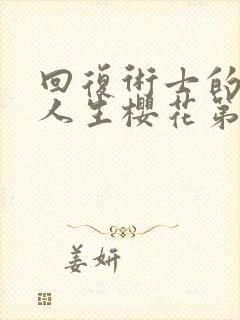 回復術士的
人生櫻花第
姜妍